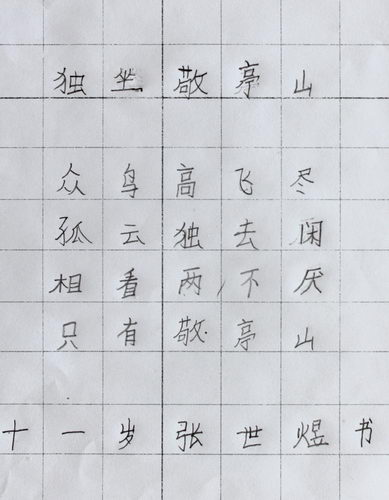 独坐敬亭山
众鸟高飞尽
孤云独去闲
相看两不厌
只有敬亭山
十一岁张世煜书